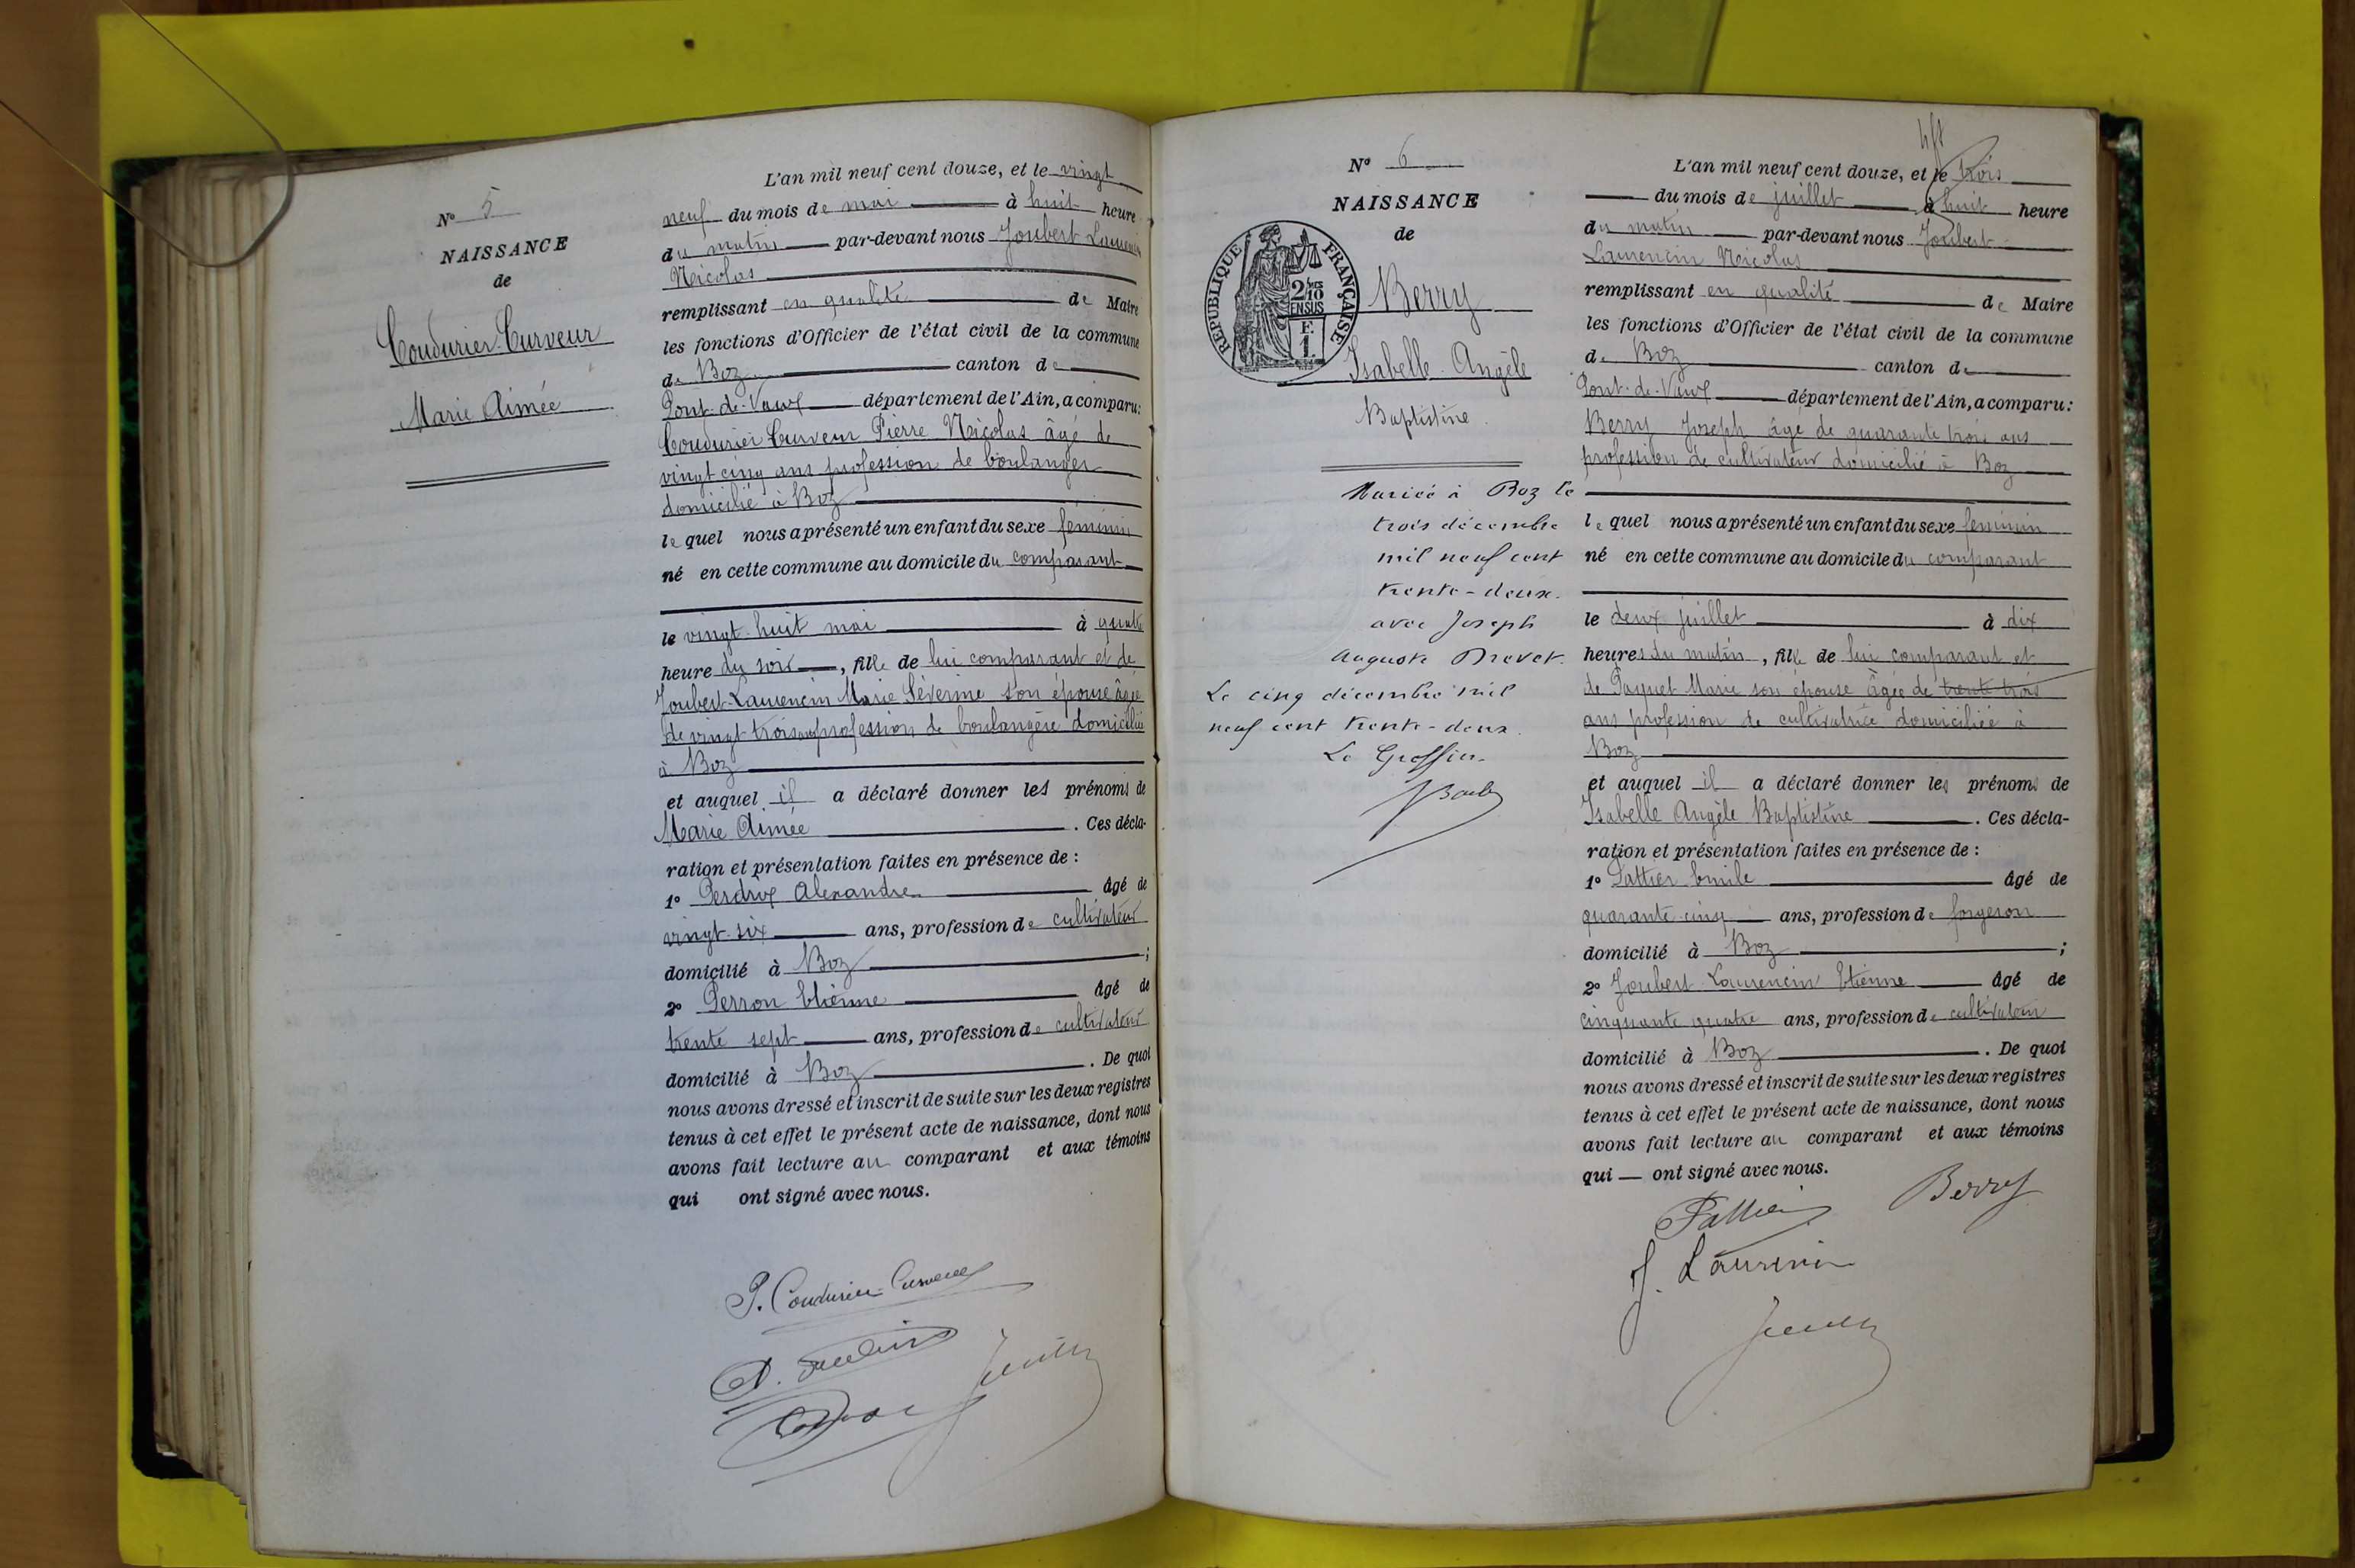 N° 5
NAISSANCE
de
Coudurier-Curveur
Marie Aimée
L'an mil neuf cent douze, et le vingt
neuf du mois de mai à huit heure
du matin par-devant nous Joubert Laurencin
Nicolas
remplissant en qualité de Maire
les fonctions d'Officier de l'état civil de la commune
de Boz canton de
Pont-de-Vaux département de l'Ain, a comparu:
Coudurier Curveur Pierre Nicolas âgé de
vingt cinq ans profession de boulanger
domicilié à Boz
lequel nous a présenté un enfant du sexe féminin
né en cette commune au domicile du comparant
le vingt-huit mai à quatre
heure du soir, fille de lui comparant et de
Joubert-Laurencin Marie Séverine son épouse âgée
de vingt trois ans profession de boulangère domiciliée
à Boz
et auquel il a déclaré donner les prénoms de
Marie Aimée. Ces décla-
ration et présentation faites en présence de :
1° Perdrix Alexandre âgé de
vingt-six ans, profession de cultivateur
domicilié à Boz ;
2° Perron Etienne âgé de
trente sept ans, profession de cultivateur
domicilié à Boz. De quoi
nous avons dressé et inscrit de suite sur les deux registres
tenus à cet effet le présent acte de naissance, dont nous
avons fait lecture au comparant et aux témoins
qui ont signé avec nous.
P. Coudurier-Curveur
N° 6
NAISSANCE
de
RÉPUBLIQUE FRANÇAISE
2/10
EN SUS
F.
1.
Berry
Isabelle Angèle
Baptistine
Mariée à Boz le
trois décembre
mil neuf cent
trente-deux.
avec Joseph
Auguste Prevet.
Le cinq décembre mil
neuf cent trente-deux.
Le Greffier
L'an mil neuf cent douze, et le trois
du mois de juillet à huit heure
du matin par-devant nous Joubert
Laurencin Nicolas
remplissant en qualité de Maire
les fonctions d'Officier de l'état civil de la commune
de Boz canton de
Pont-de-Vaux département de l'Ain, a comparu:
Berry Joseph âgé de quarante trois ans
profession de cultivateur domicilié à Boz
lequel nous a présenté un enfant du sexe féminin
né en cette commune au domicile du comparant
le deux juillet à dix
heures du matin, fille de lui comparant et
de Paquet Marie son épouse âgée de trente trois
ans profession de cultivatrice domiciliée à
Boz
et auquel il a déclaré donner les prénoms de
Isabelle Angèle Baptistine. Ces décla-
ration et présentation faites en présence de :
1° Pattier Emile âgé de
quarante-cinq ans, profession de forgeron
domicilié à Boz ;
2° Joubert-Laurencin Etienne âgé de
cinquante quatre ans, profession de cultivateur
domicilié à Boz. De quoi
nous avons dressé et inscrit de suite sur les deux registres
tenus à cet effet le présent acte de naissance, dont nous
avons fait lecture au comparant et aux témoins
qui — ont signé avec nous.
Pattier Berry
J. Laurencin